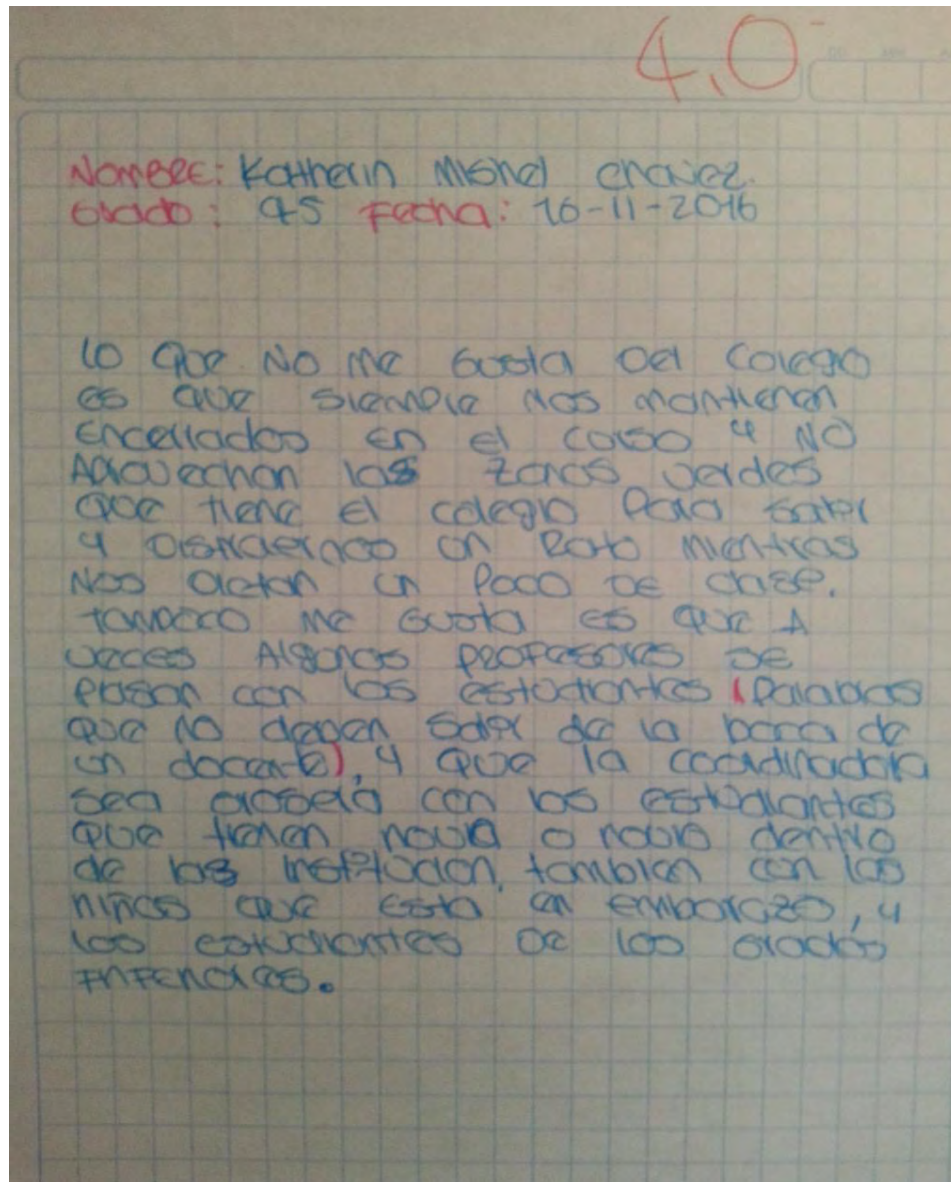 4,0
Nombre: Katherin Mishel Chavez.
Grado: 95 Fecha: 16-11-2016
Lo que no me gusta del colegio
es que siempre nos mantienen
encerrados en el curso y no
aprovechan las zonas verdes
que tiene el colegio para salir
y distraernos un rato mientras
nos dictan un poco de clase.
tampoco me gusta es que a
veces algunos profesores se
pasan con los estudiantes (palabras
que no deben salir de la boca de
un docente), y que la coordinadora
sea grosera con los estudiantes
que tienen novia o novio dentro
de las institucion, tambien con las
niñas que esta en embarazo, y
los estudiantes de los grados
inferiores.